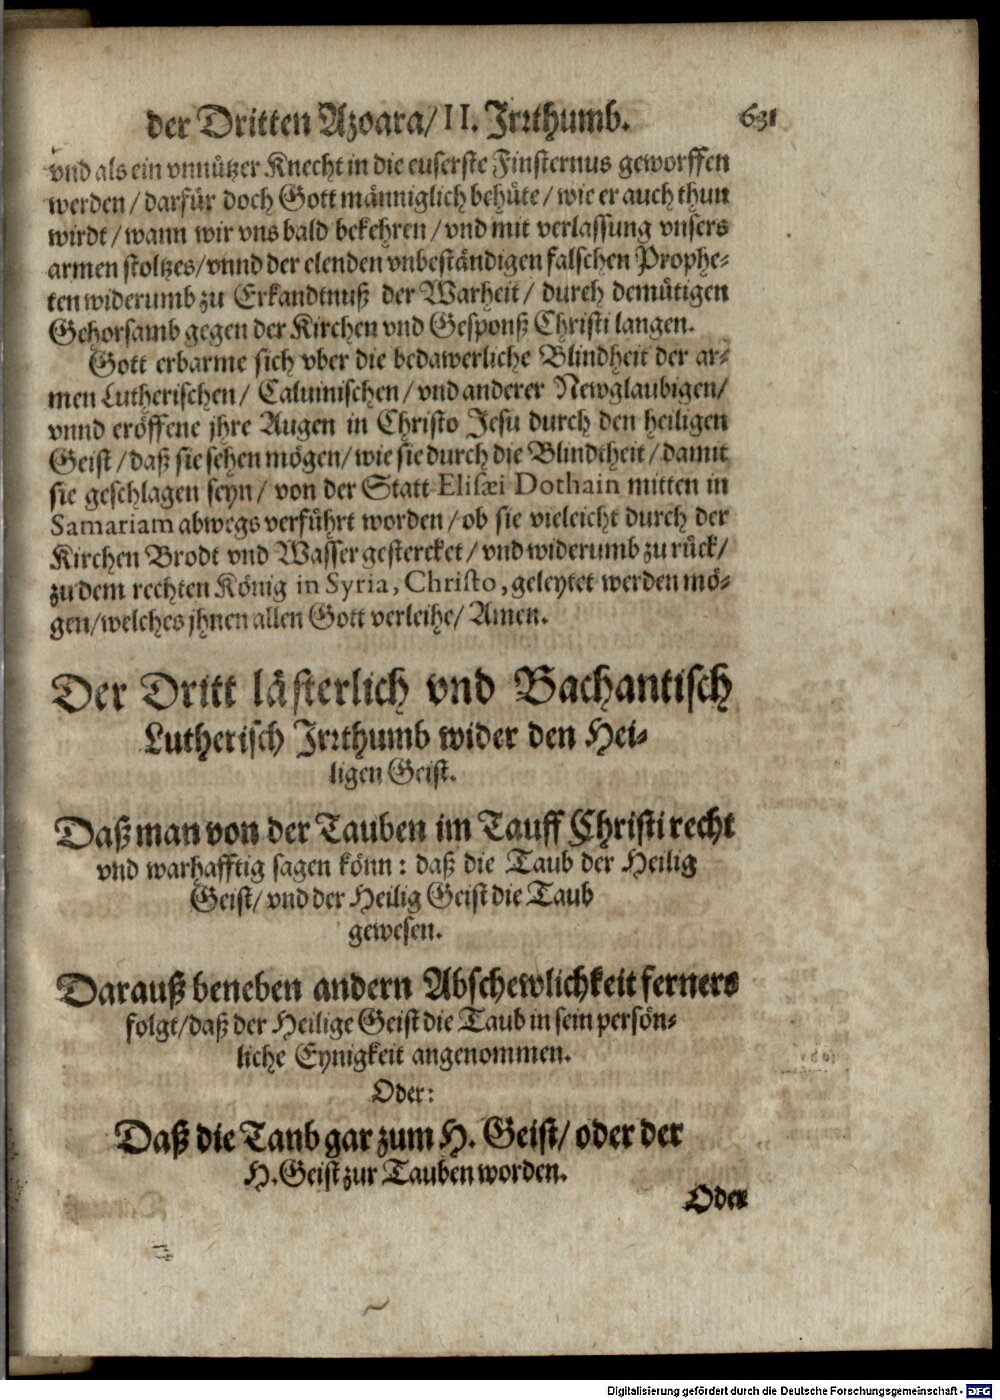 der Dritten Azoara/ II. Irꝛthumb. 631
vnd als ein vnnützer Knecht in die euserste Finsternus geworffen
werden / darfür doch Gott männiglich behüte / wie er auch thun
wirdt / wann wir vns bald bekehren / vnd mit verlassung vnsers
armen stoltzes/ vnnd der elenden vnbeständigen falschen Prophe-
ten widerumb zu Erkandtnuß der Warheit / durch demütigen
Gehorsamb gegen der Kirchen vnd Gesponß Christi langen.
Gott erbarme sich vber die bedawerliche Blindheit der ar-
men Lutherischen / Caluinischen / vnd anderer Newglaubigen /
vnnd eröffene jhre Augen in Christo Jesu durch den heiligen
Geist / daß sie sehen mögen / wie sie durch die Blindtheit / damit
sie geschlagen seyn / von der Statt Elisæi Dothain mitten in
Samariam abwegs verführt worden / ob sie vieleicht durch der
Kirchen Brodt vnd Wasser gestercket / vnd widerumb zu rück /
zu dem rechten König in Syria, Christo, geleytet werden mö-
gen / welches jhnen allen Gott verleihe / Amen.
Der Dritt lästerlich vnd Bachantisch
Lutherisch Irꝛthumb wider den Hei-
ligen Geist.
Daß man von der Tauben im Tauff Christi recht
vnd warhafftig sagen könn : daß die Taub der Heilig
Geist / vnd der Heilig Geist die Taub
gewesen.
Darauß beneben andern Abschewlichkeit ferners
folgt / daß der Heilige Geist die Taub in sein persön-
liche Eynigkeit angenommen.
Oder:
Daß die Taub gar zum H. Geist / oder der
H. Geist zur Tauben worden.
Oder
Digitalisierung gefördert durch die Deutsche Forschungsgemeinschaft - DFG